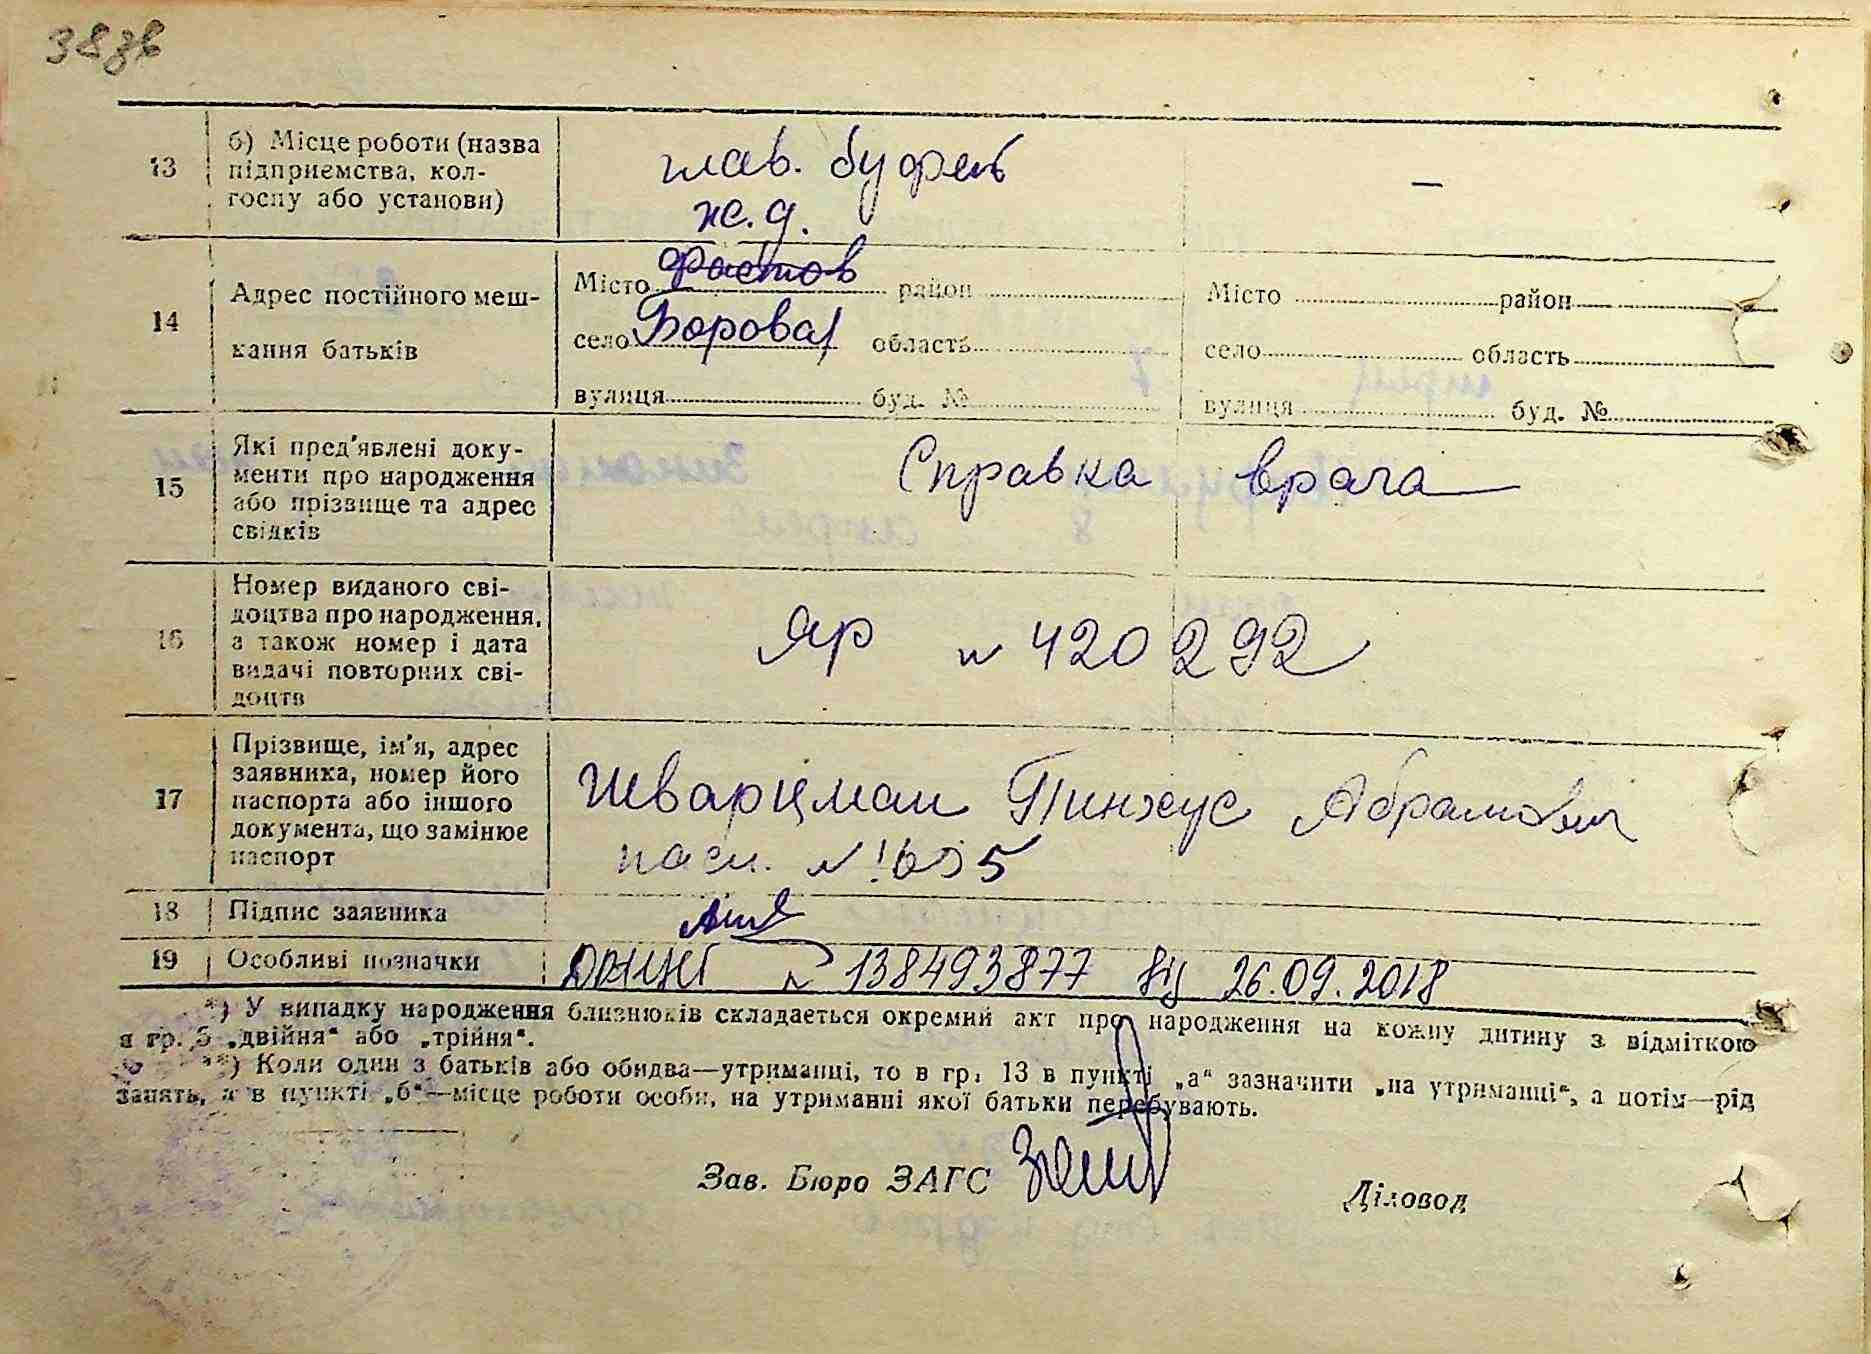 383в
13 б) Місце роботи (назва
підприємства, кол-
госпу або установи)
глав. буфет
ж.д.
—
14 Адрес постійного меш-
кання батьків
Місто Фастов район
село Боровая область
вулиця буд. №
Місто район
село область
вулиця буд. №
15 Які пред'явлені доку-
менти про народження
або прізвище та адрес
свідків
Справка врача
16 Номер виданого сві-
доцтва про народження,
а також номер і дата
видачі повторних сві-
доцтв
ЯР № 420292
17 Прізвище, ім'я, адрес
заявника, номер його
паспорта або іншого
документа, що замінює
паспорт
Шварцман Пинхус Абрамович
пасп. №
18 Підпис заявника
19 Особливі позначки
№ 138493877 від 26.09.2018
*) У випадку народження близнюків складається окремий акт про народження на кожну дитину з відміткою
в гр. 5 „двійня“ або „трійня“.
**) Коли один з батьків або обидва—утриманці, то в гр. 13 в пункті „а“ зазначити „на утриманці“, а потім—рід
занять, а в пункті „б“—місце роботи особи, на утриманні якої батьки перебувають.
Зав. Бюро ЗАГС
Діловод